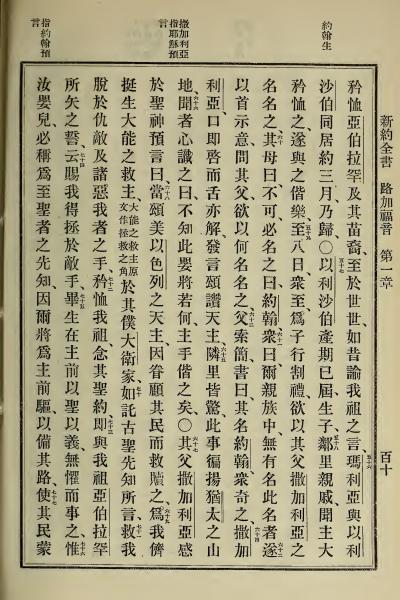 新約全書　路加福音　第一章　百十
矜恤亞伯拉罕及其苗裔至於世世、如昔諭我祖之言、瑪利亞與以利
五十六
沙伯同居、約三月乃歸、〇以利沙伯產期已屆、生子、鄰里親戚、聞主大
五十七
五十八
約翰生
矜恤之、遂與之偕樂、至八日、衆至、爲子行割禮、欲以其父撒加利亞之
五十九
名名之、其母曰、不可、必名之曰約翰、衆曰、爾親族中、無有名此名者、遂
六十
六十一
六十二
以首示意、問其父欲以何名名之、父索簡書曰、其名約翰、衆奇之、撒加
六十三
六十四
利亞口卽啓而舌亦解、發言頌讚天主、鄰里皆驚、此事徧揚猶太之山
六十五
地、聞者心識之曰、不知此嬰將若何、主手偕之矣、〇其父撒加利亞感
六十六
六十七
撒加利亞指耶穌預言
於聖神、預言曰、當頌美以色列之天主、因眷顧其民而救贖之、爲我儕
六十八
挺生大能之救主、大能之救主原文作拯救之角於其僕大衛家、如託古聖先知所言、救我
脫於仇敵、及諸惡我者之手、矜恤我祖、念其聖約、卽與我祖亞伯拉罕
所矢之誓、云、賜我得拯於敵手、畢生在主前、以聖以義、無懼而事之、惟
七十四
七十五
七十六
指約翰預言
汝嬰兒、必稱爲至聖者之先知、因爾將爲主前驅、以備其路、使其民蒙
七十七